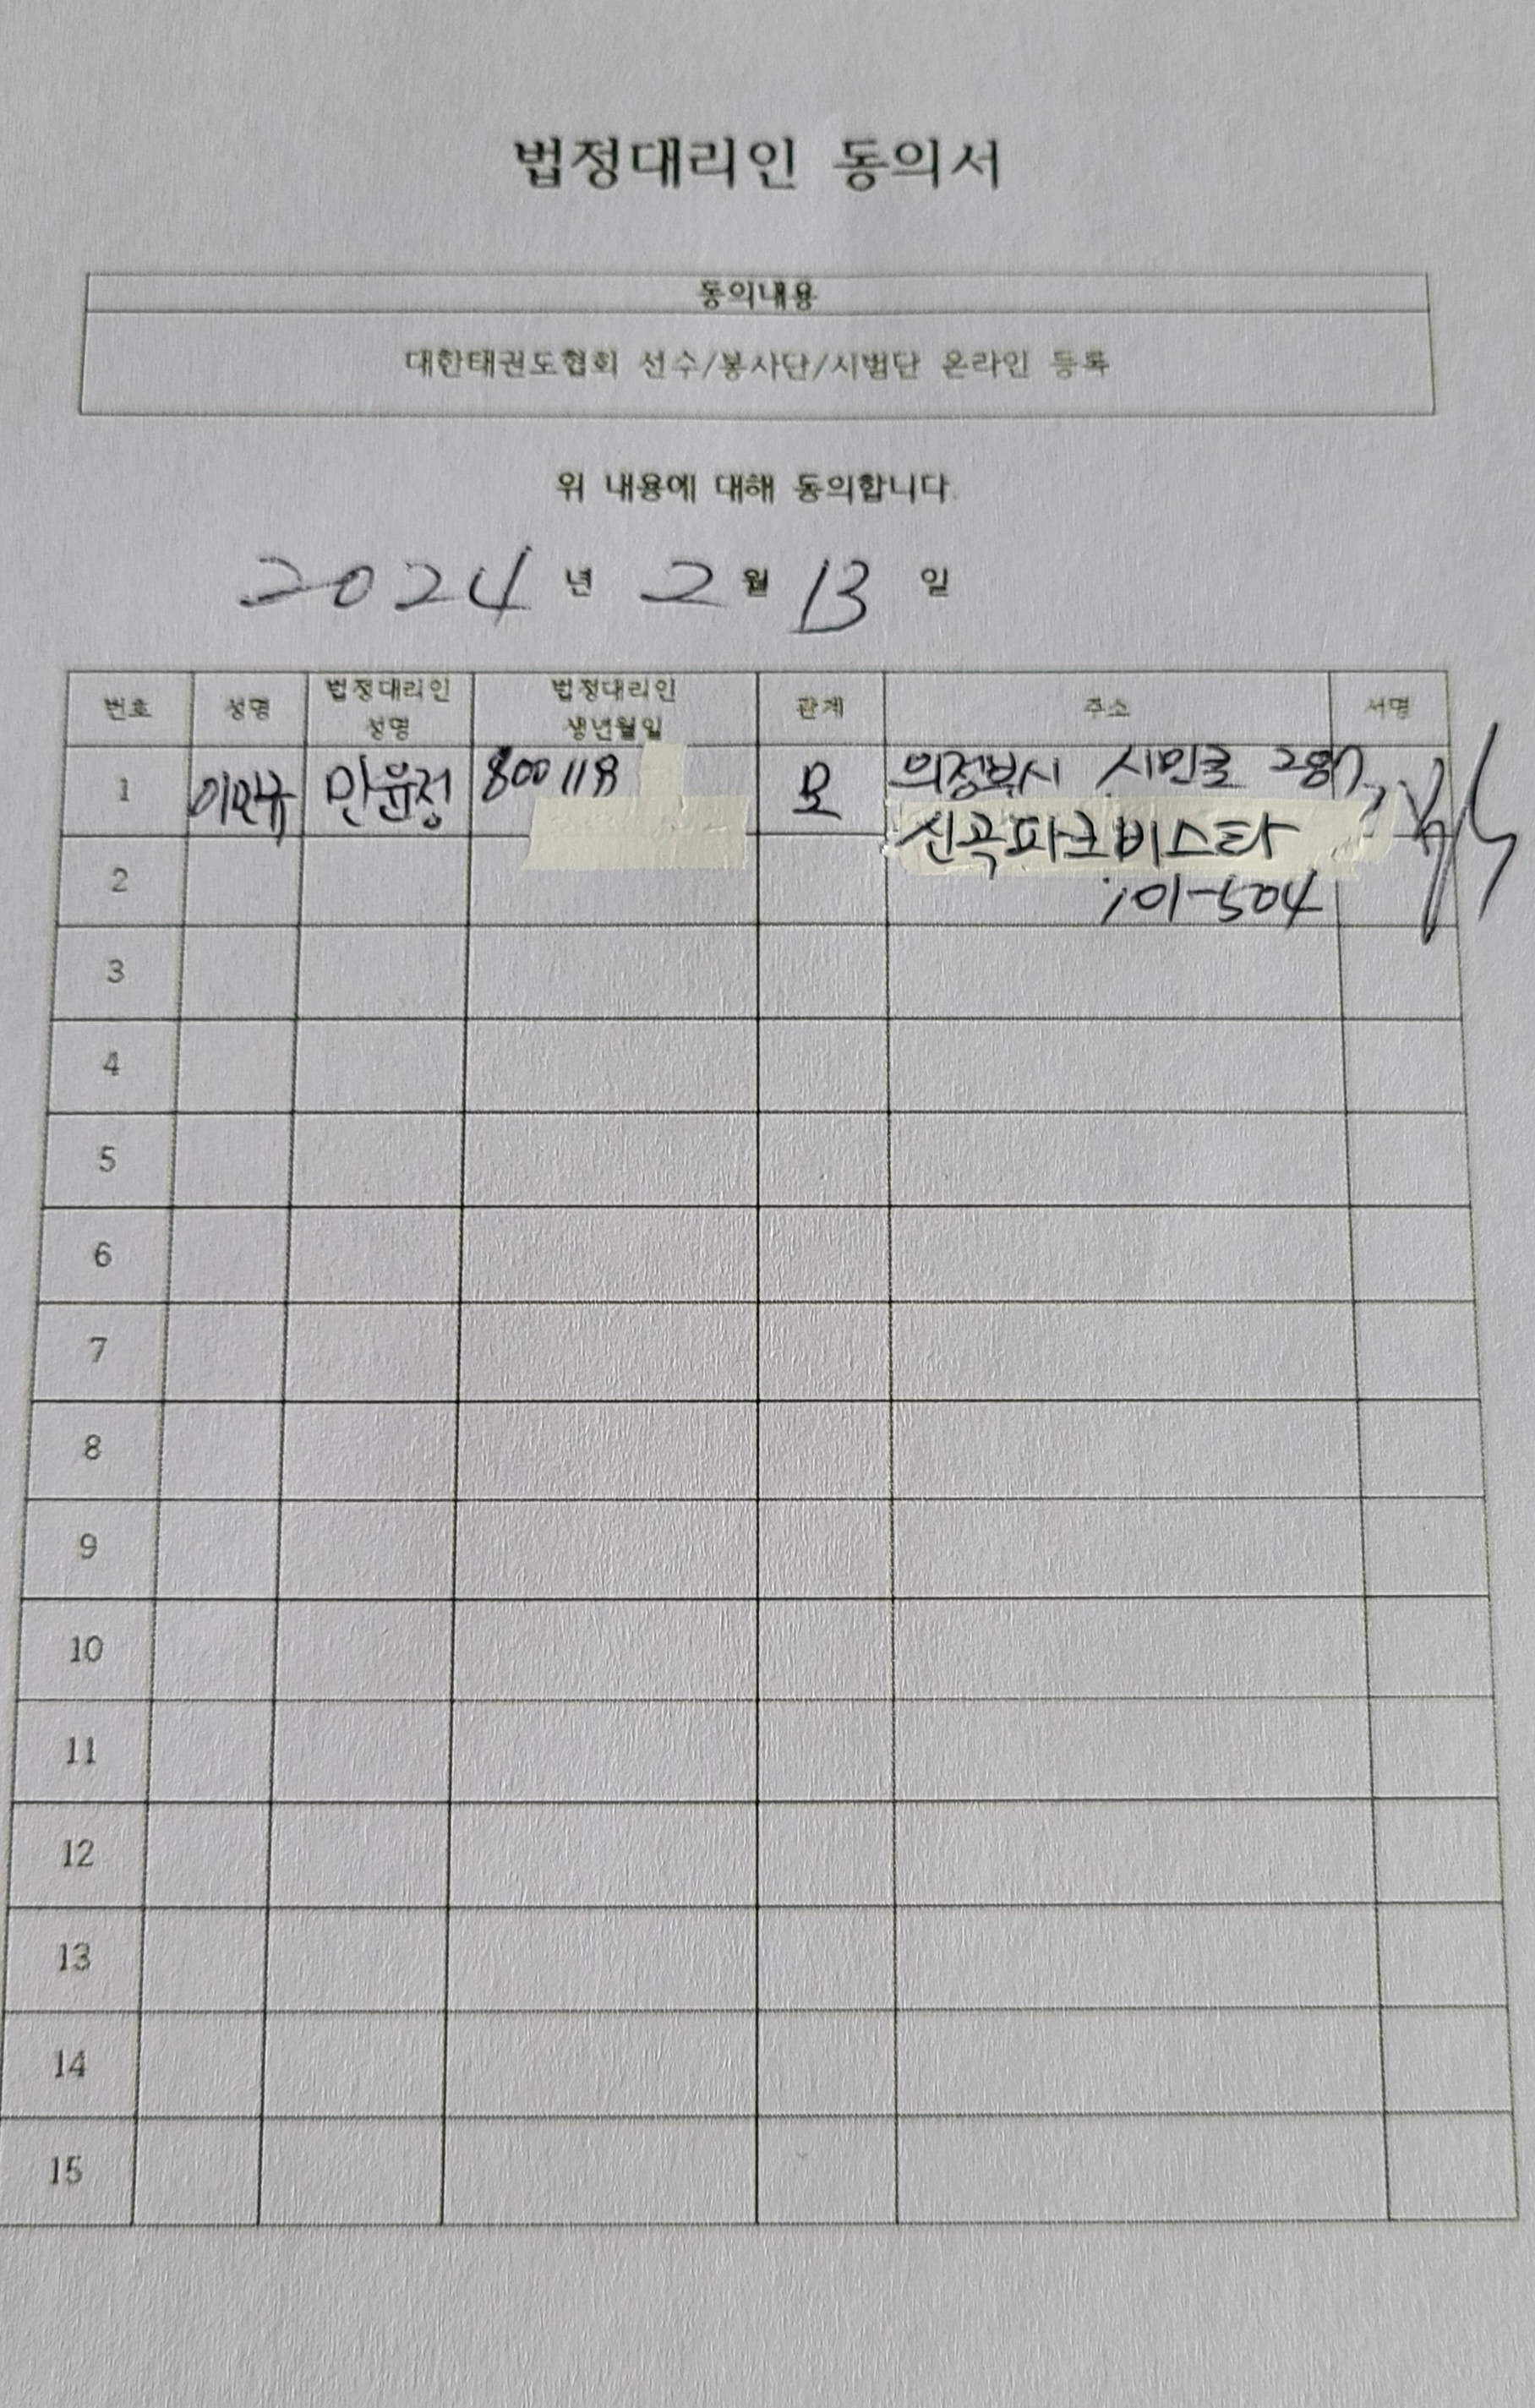 법정대리인 동의서
동의내용
대한태권도협회 선수/봉사단/시범단 온라인 등록
위 내용에 대해 동의합니다.
2024 년 2 월 13 일
번호 성명 법정대리인 성명 법정대리인 생년월일 관계 주소 서명
1 이민규 민윤정 800118 모 의정부시 시민로
신곡파크비스타
101-504
2
3
4
5
6
7
8
9
10
11
12
13
14
15